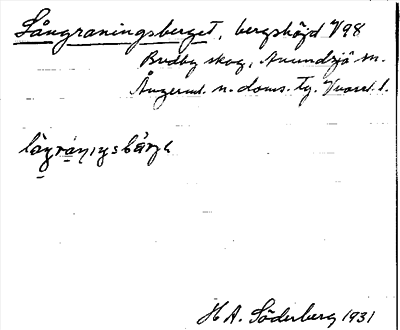 Långraningsberget, bergshöjd V98
Bredby skog, Anundsjö sn.
Ångerml. n. doms. Tg.
långraningsbärge
H A. Söderberg 1931